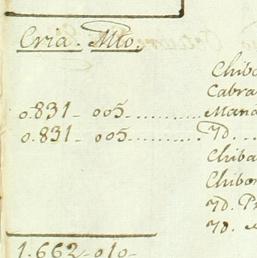 Cria. Mto.
Chibo
Cabra
0.831_005..........Mana
0.831_005..........Yd.
Chiba
Chibon
Yd. P
Yd.
1.662_010_